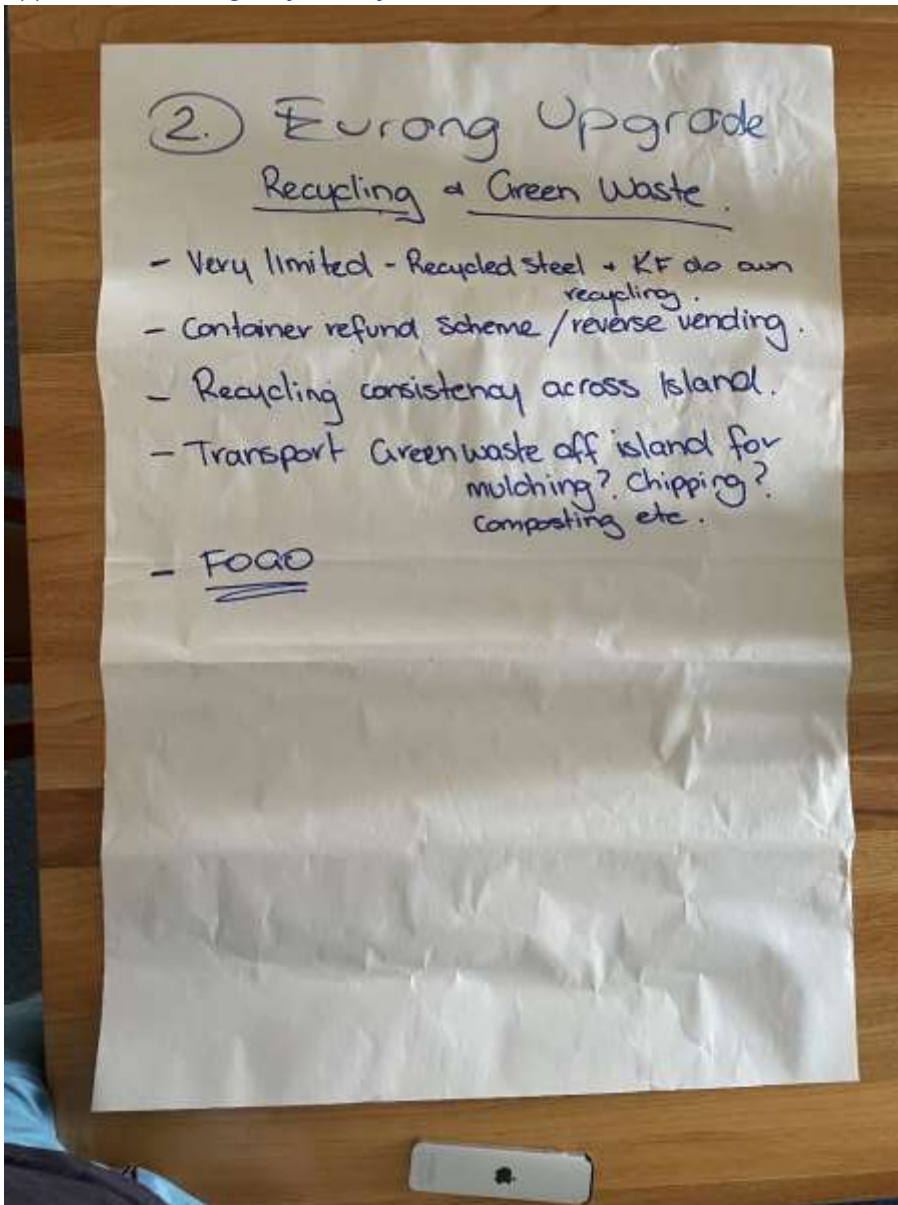 2. Eurong Upgrade
Recycling & Green Waste.
- Very limited - Recycled steel + KF do own
recycling.
- Container refund scheme / reverse vending.
- Recycling consistency across Island.
- Transport Greenwaste off island for
mulching? Chipping?
composting etc.
- FOGO